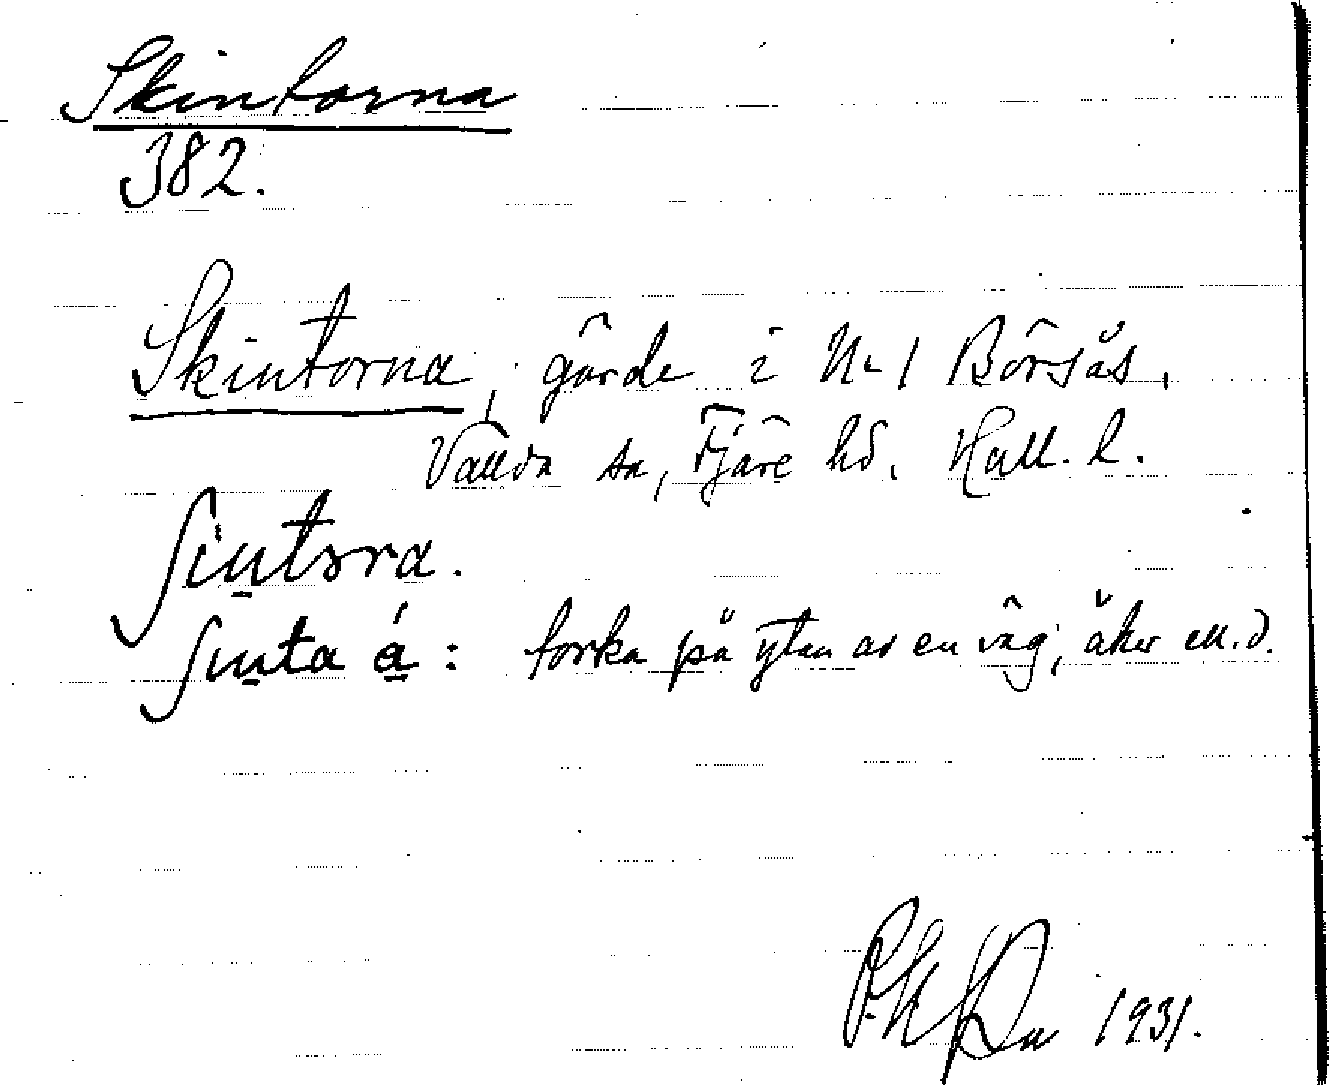 Skintorna
382.
Skintorna, gärde i Nr 1 Börsås,
Vallda sn, Fjäre hd. Hall. l.
ʃintora.
ʃinta á: torka på ytan av en väg, åker m.d.
1931.